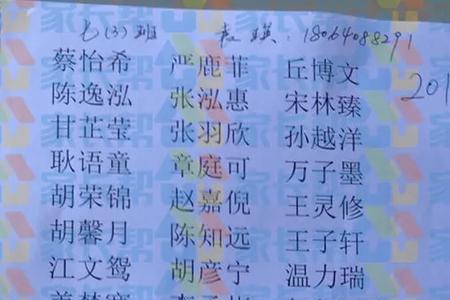 七(3)班 赵瑛:18064088291
蔡怡希 严鹿菲 丘博文
201
陈逸泓 张泓惠 宋林臻
甘芷莹 张羽欣 孙越洋
耿语童 章庭可 万子墨
胡荣锦 赵嘉倪 王灵修
胡馨月 陈知远 王子轩
江文鸳 胡彦宁 温力瑞